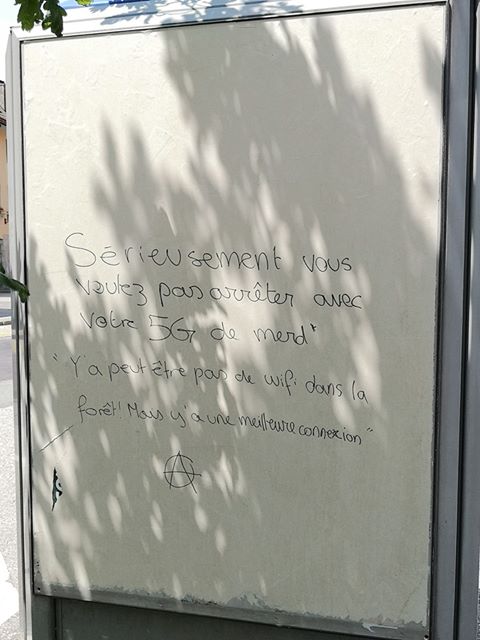 Sérieusement vous
voulez pas arrêter avec
votre 5G de merd*
"Y'a peut être pas de wifi dans la
forêt! Mais y'a une meilleure connexion"